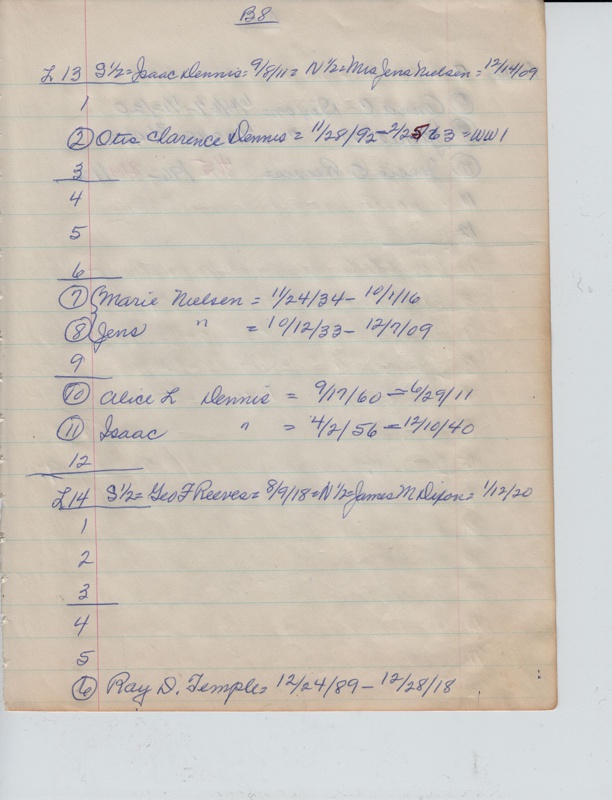 B8
L 13 S½ = Isaac Dennis = 9/8/11 = N½ = Mrs Jens Nielsen = 12/14/09
1
2 Otis Clarence Dennis = 11/28/92 - 2/25/63 = WW1
3
4
5
6
7 Marie Nielsen = 11/24/34 - 10/1/16
8 Jens " = 10/12/33 - 12/7/09
9
10 Alice L Dennis = 9/17/60 = 6/29/11
11 Isaac " = 4/2/56 = 12/10/40
12
L14 S½ = Geo F Reeves = 8/9/18 = N½ = James M Dixon = 1/12/20
1
2
3
4
5
6 Ray D. Temple = 12/24/89 - 12/28/18